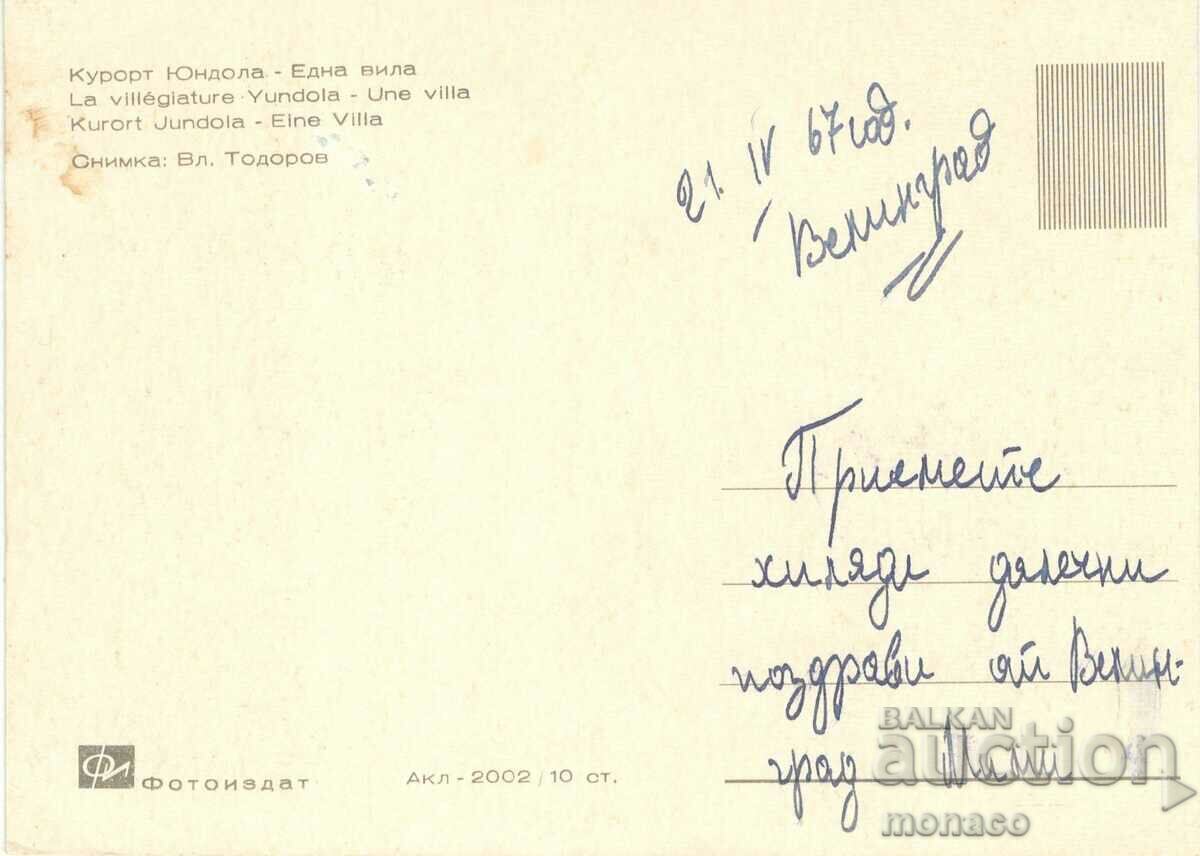 Курорт Юндола - Една вила
La villégiature Yundola - Une villa
Kurort Jundola - Eine Villa
Снимка: Вл. Тодоров
21. IV 67 год.
Велинград
Приемете
хиляди далечни
поздрави от Велин-
град
Фотоиздат
Акл - 2002 / 10 ст.
BALKAN
auction
monaco